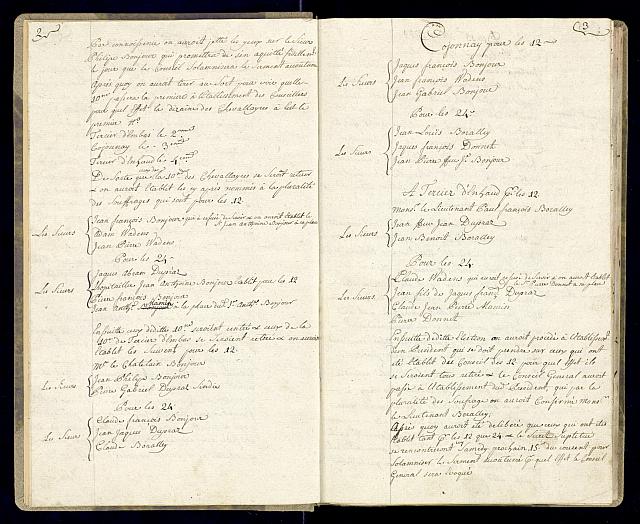 2
Par connoissence on auroit jetté les yeux sur le Sieur
Philipe Bonjour qui promettra de s'en aquitté fidellem.t
le jour que le Conseil Solamnisera le Serment accoutumé
Apres quoy on auroit tirer au Sort pour voir quelle
10.me passera la premiere à l'établissement des Conseillers
pour quel Effet la dizaine des Chevallayes à eut le
premier N.o
Tercier d'Embas le 2.me
Cojonnay le 3.eme
Tercier d'Enhaud le 4.eme
De Sorte que la 10.me des Chevallayes se Seroit retirer
& on auroit Etablit les cy apres nommés à la pluralité
des Souffrages qui sont pour les 12
Les Sieurs
Jean François Bonjour qui a refusé de Servir & on auroit établit le
S.r Jean Anthoine Bonjour à sa place
Adam Wadens
Jean Pierre Wadens
Pour les 24
Les Sieurs
Jaque Abram Dupraz
L'hopitallier Jean Anthoine Bonjour Etablit pour les 12
Pierre François Bonjour
Jean Anth.e Mamin à la place dud.t S.r Anth.e Bonjour
Ensuitte ceux deditte 10.me seroient rentré & ceux de la
10.e de Tercier d'Embas se Seroient retiré & on auroit
Etablit les Suivens pour les 12
Les Sieurs
M.r le Chatelain Bonjour
Jean Philipe Bonjour
Pierre Gabriel Dupraz Sindic
Pour les 24
Les Sieurs
Claude François Bonjour
Jean Jaques Dupraz
Claude Boralley
3
Cojonnay pour les 12
Les Sieurs
Jaques François Bonjour
Jean François Wadens
Jean Gabriel Bonjour
Pour les 24
Les Sieurs
Jean Louïs Boralley
Jaques François Donnet
Jean Pierre ffeu J.s Bonjour
A Tercier d'Enhaud p.r les 12
Les Sieurs
Mons.r le Lieutenant Paul François Boralley
Jean ffeu Jean Dupraz
Jean Benoit Boralley
Pour les 24
Les Sieurs
Claude Wadens qui auroit refusé de Servir & on auroit établit
le S.r Pierre Donnet à sa place
Jean fils de Jaques Franç.s Dupraz
Claude Jean Pierre Mamin
Pierre Donnet
Ensuitte deditte Election on auroit procedé à l'Etablissem.t
d'un President qui se doit prendre sur ceux qui ont
été Etablit des Conseil des 12 pour quel Effet ils
se Seroient tous retiré & le Conseil General auroit
passé à l'Etablissement du President, qui par la
pluralité des Souffrage on auroit Confirmé Mons.r
le Lieutenant Boralley;
Apres quoy auroit été deliberé que ceux qui ont été
Etablit tant p.r les 12 que 24 & le Secret. Supstitue
se rencontreront Samedy prochain 15.e du courent pour
Solamniser le Serment accoutumé p.r quel Effet le Conseil
General sera évoqué